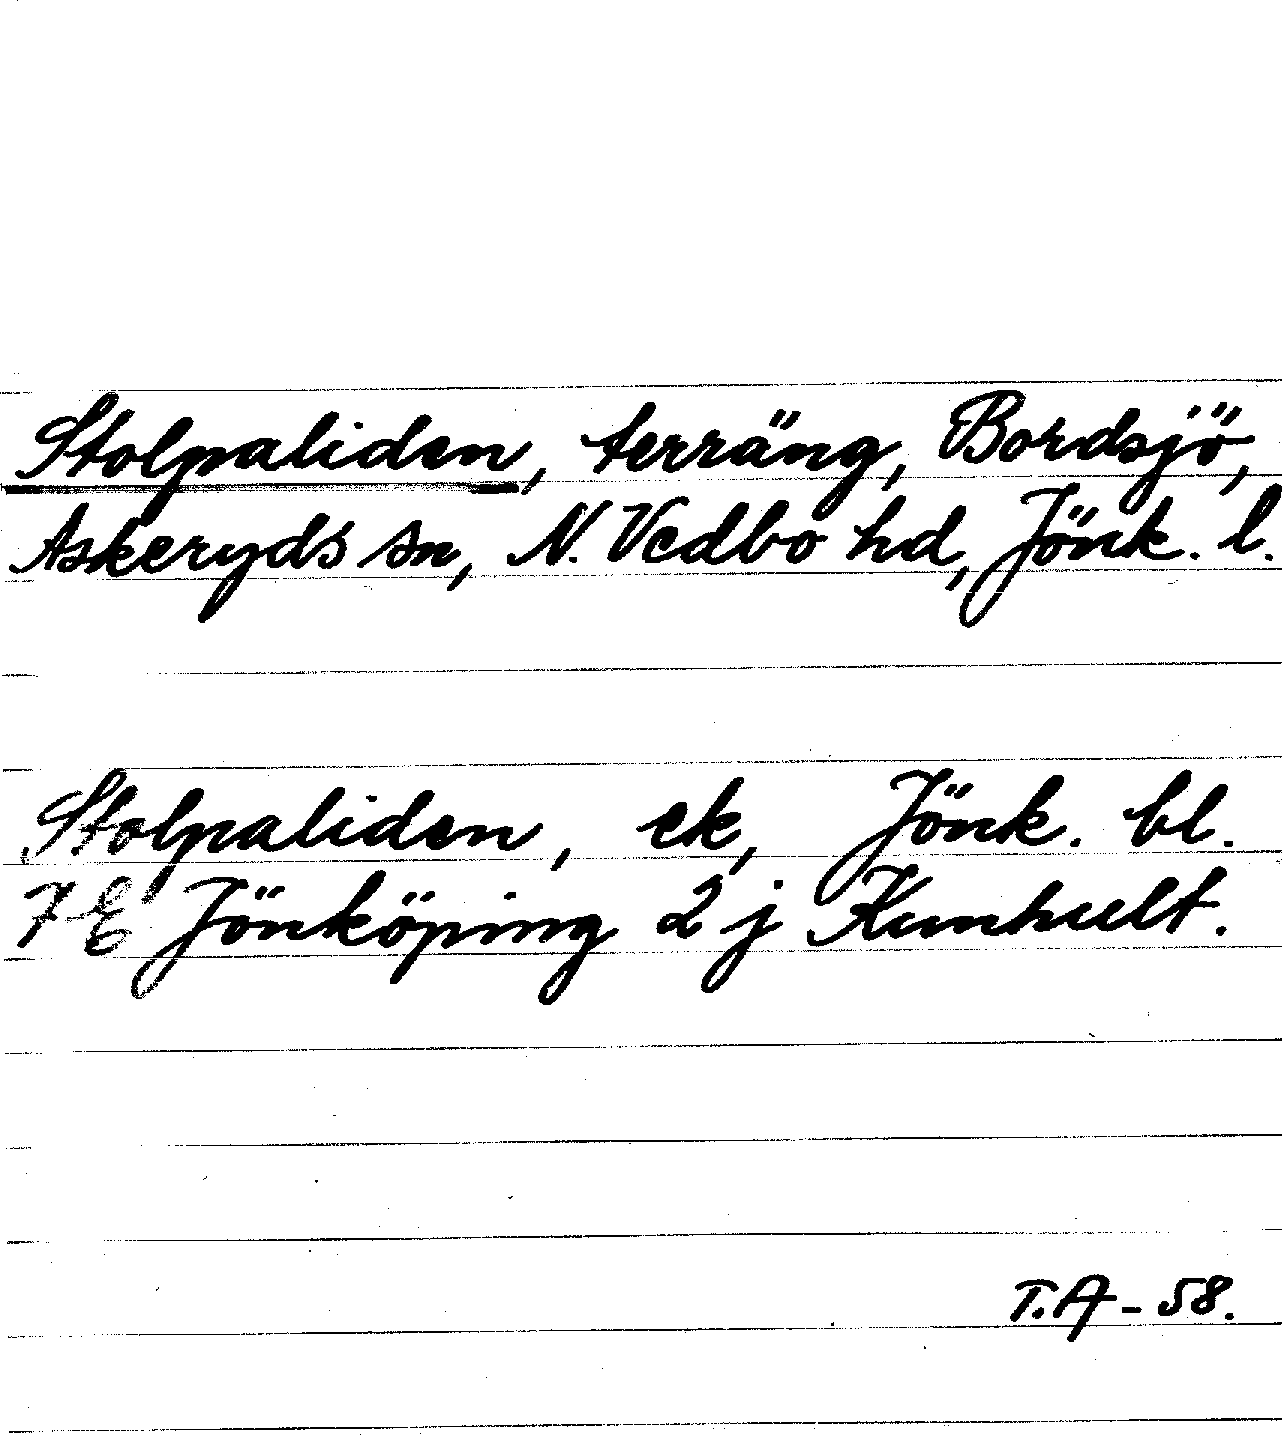 Stolpaliden, terräng, Bordsjö,
Askeryds sn, N. Vedbo hd, Jönk. l.
Stolpaliden, ek, Jönk. bl.
7 E Jönköping 2 j Kunhult.
T.A - 58.